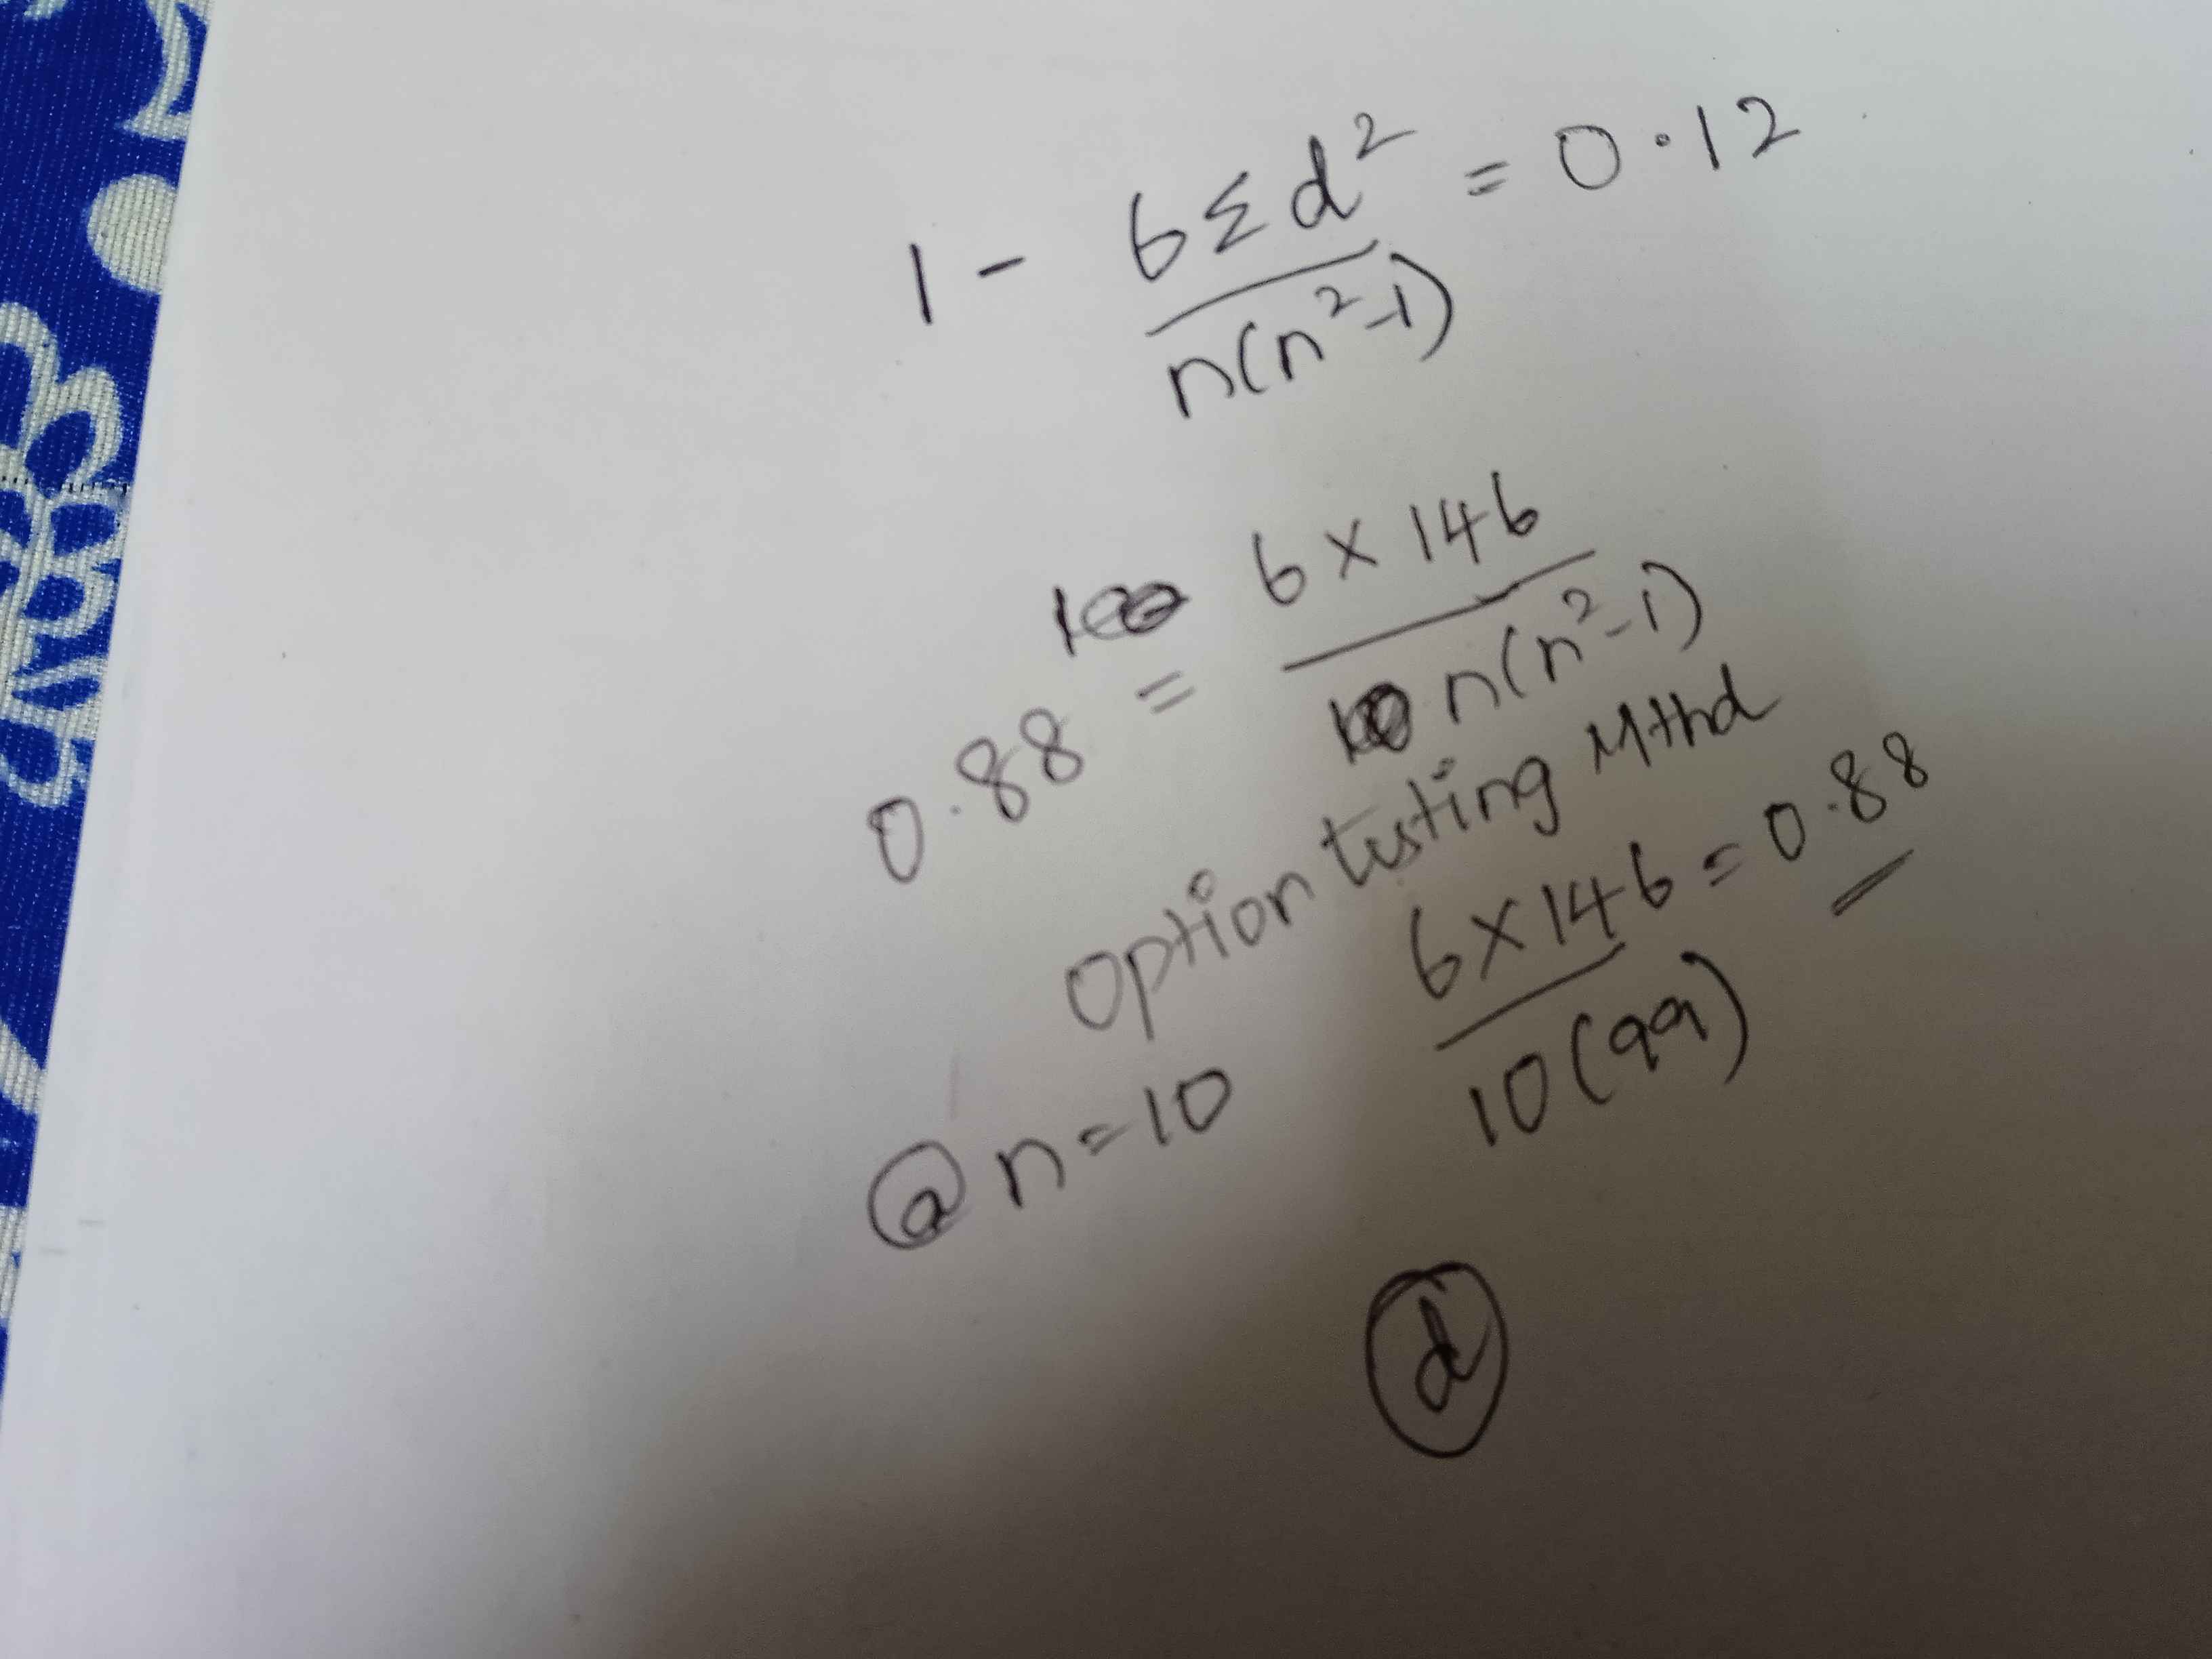 1 - 6Σd² / n(n²-1) = 0.12
0.88 = 6 x 146 / n(n²-1)
Option testing Mthd
@ n = 10 6 x 146 / 10(99) = 0.88
d